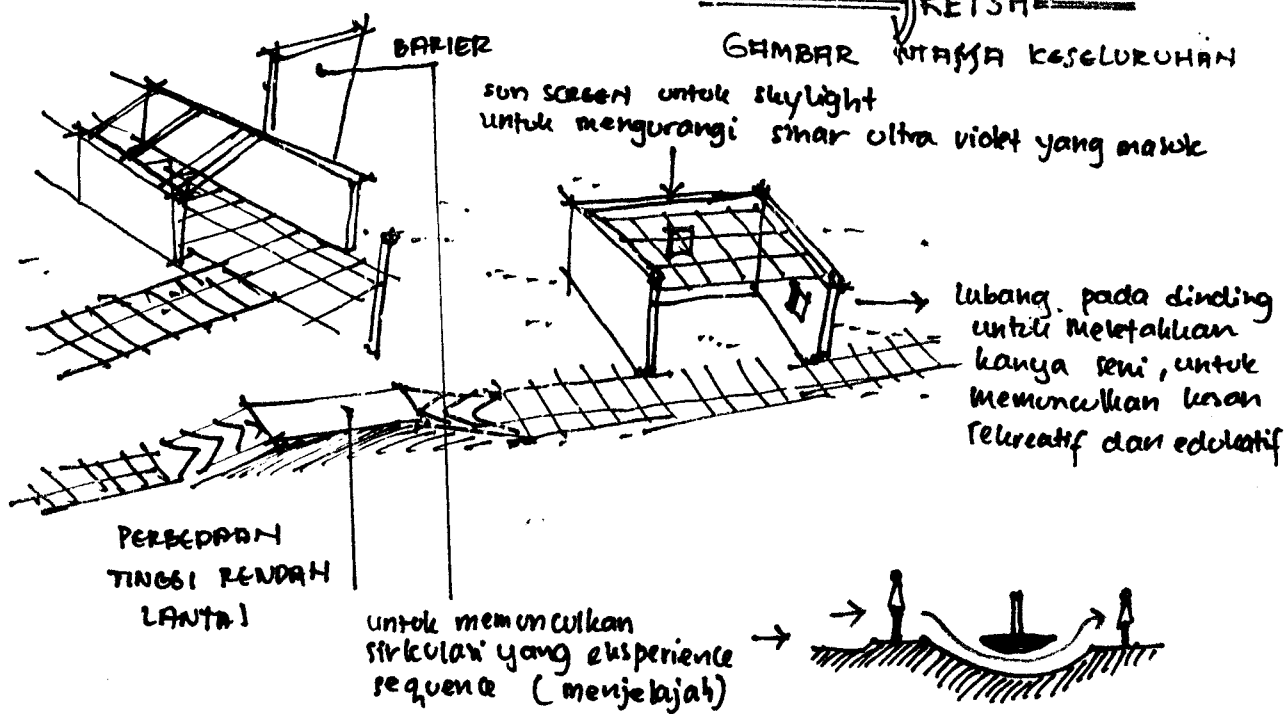 SKETSA
GAMBAR SITASSA KESELURUHAN
BARIER
sun SCREEN untuk skylight
untuk mengurangi sinar ultra violet yang masuk
lubang pada dinding
untuk meletakkan
karya seni, untuk
memunculkan kesan
rekreatif dan edukatif
PERBEDAAN
TINGGI RENDAH
LANTAI
untuk memunculkan
sirkulasi yang eksperience
sequence (menjelajah)